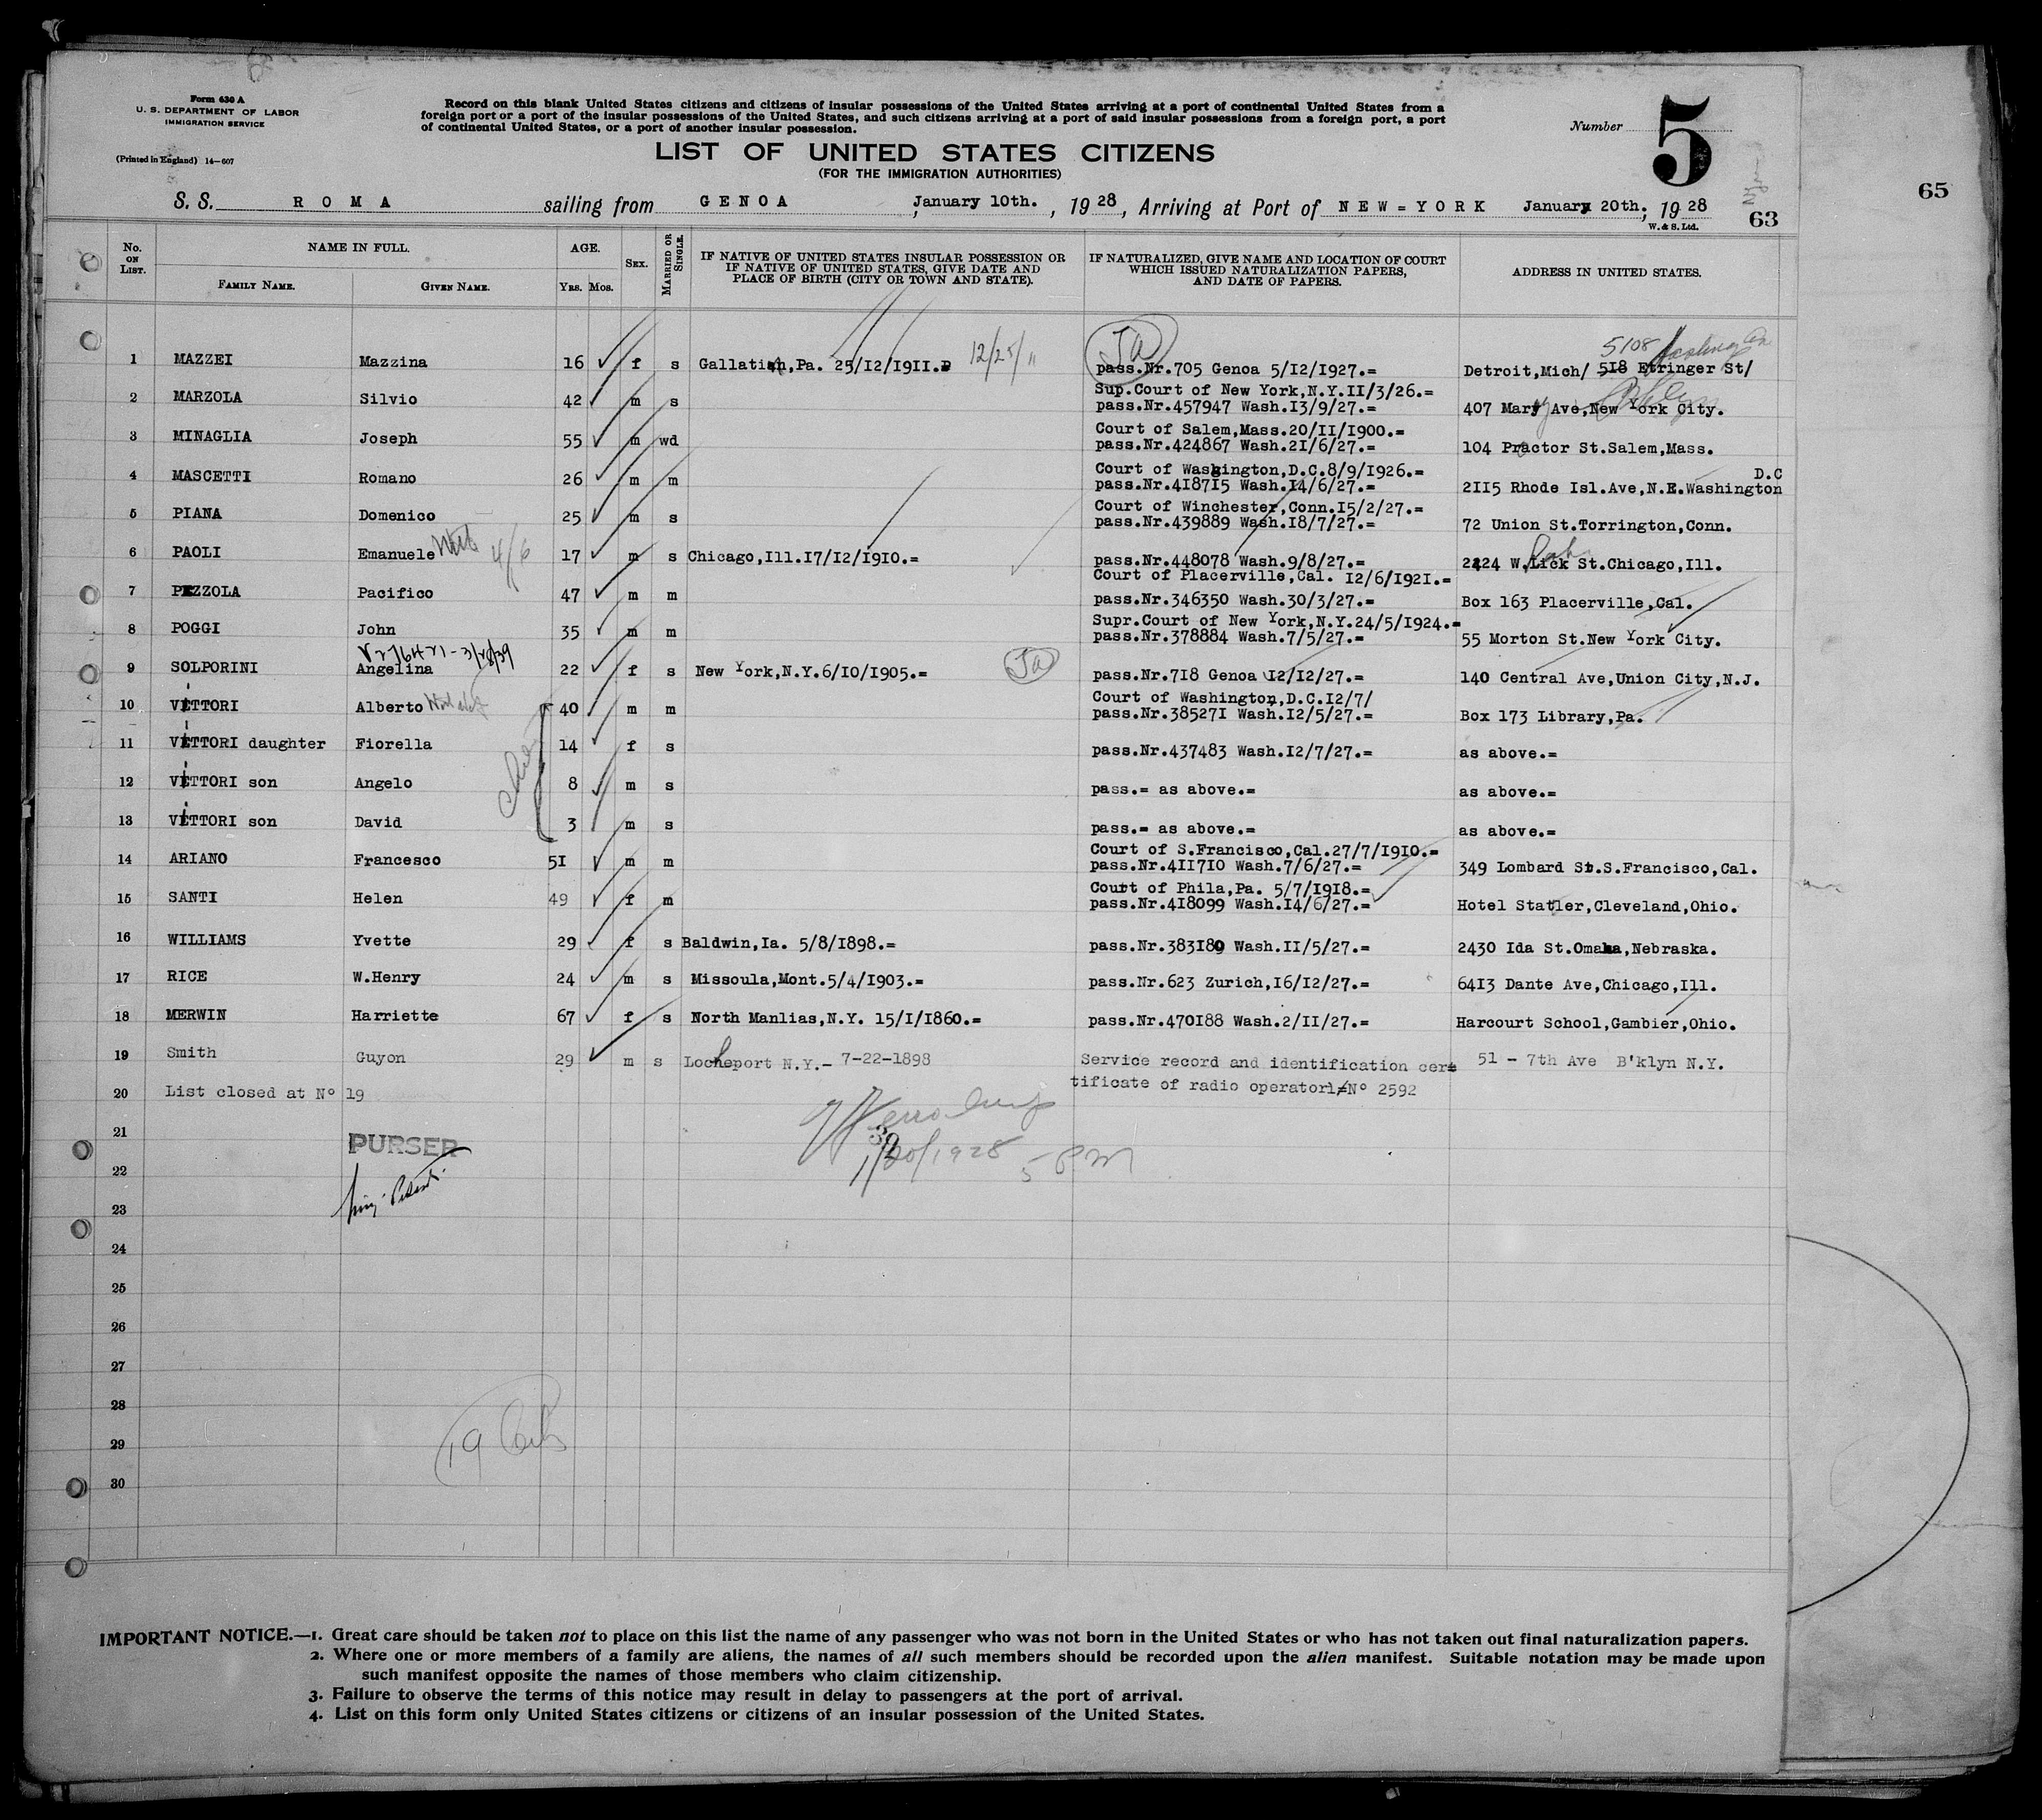 Form 630 A
U. S. DEPARTMENT OF LABOR
IMMIGRATION SERVICE
(Printed in England) 14—607
Record on this blank United States citizens and citizens of insular possessions of the United States arriving at a port of continental United States from a
foreign port or a port of the insular possessions of the United States, and such citizens arriving at a port of said insular possessions from a foreign port, a port
of continental United States, or a port of another insular possession.
LIST OF UNITED STATES CITIZENS
(FOR THE IMMIGRATION AUTHORITIES)
Number 5
65
S. S. ROMA sailing from GENOA, January 10th., 1928, Arriving at Port of NEW=YORK January 20th; 1928
W. & S. Ltd.
63
No. ON LIST. NAME IN FULL. AGE. SEX. MARRIED OR SINGLE. IF NATIVE OF UNITED STATES INSULAR POSSESSION OR IF NATIVE OF UNITED STATES, GIVE DATE AND PLACE OF BIRTH (CITY OR TOWN AND STATE). IF NATURALIZED, GIVE NAME AND LOCATION OF COURT WHICH ISSUED NATURALIZATION PAPERS, AND DATE OF PAPERS. ADDRESS IN UNITED STATES.
FAMILY NAME. GIVEN NAME. YRS. MOS.
5108
1 MAZZEI Mazzina 16 f s Gallatin,Pa. 25/12/1911.= 12/25/11 pass.Nr.705 Genoa 5/12/1927.= Detroit,Mich/ 518 Etringer St/
Sup.Court of New York,N.Y.II/3/26.=
2 MARZOLA Silvio 42 m s pass.Nr.457947 Wash.I3/9/27.= 407 Mary Ave,New York City.
Court of Salem,Mass.20/II/1900.=
3 MINAGLIA Joseph 55 m wd pass.Nr.424867 Wash.2I/6/27.= 104 Practor St.Salem,Mass.
Court of Washington,D.C.8/9/1926.= D.C
4 MASCETTI Romano 26 m m pass.Nr.4I87I5 Wash.I4/6/27.= 2II5 Rhode Isl.Ave,N.E.Washington
Court of Winchester,Conn.I5/2/27.=
5 PIANA Domenico 25 m s pass.Nr.439889 Wash.I8/7/27.= 72 Union St.Torrington,Conn.
6 PAOLI Emanuele 4/6 17 m s Chicago,Ill.I7/I2/I9IO.= pass.Nr.448078 Wash.9/8/27.= 2224 W.Lick St.Chicago,Ill.
Court of Placerville,Cal. I2/6/I92I.=
7 PEZZOLA Pacifico 47 m m pass.Nr.346350 Wash.30/3/27.= Box I63 Placerville,Cal.
Supr.Court of New York,N.Y.24/5/I924.=
8 POGGI John 35 m m pass.Nr.378884 Wash.7/5/27.= 55 Morton St.New York City.
9 SOLPORINI Angelina 22 f s New York,N.Y.6/IO/I905.= pass.Nr.7I8 Genoa I2/I2/27.= I40 Central Ave,Union City,N.J.
Court of Washington,D.C.I2/7/
10 VITTORI Alberto 40 m m pass.Nr.38527I Wash.I2/5/27.= Box I73 Library,Pa.
11 VITTORI daughter Fiorella 14 f s pass.Nr.437483 Wash.I2/7/27.= as above.=
12 VITTORI son Angelo 8 m s pass.= as above.= as above.=
13 VITTORI son David 3 m s pass.= as above.= as above.=
Court of S.Francisco,Cal.27/7/I9IO.=
14 ARIANO Francesco 5I m m pass.Nr.4II7IO Wash.7/6/27.= 349 Lombard St.S.Francisco,Cal.
Court of Phila,Pa. 5/7/I9I8.=
15 SANTI Helen 49 f m pass.Nr.4I8099 Wash.I4/6/27.= Hotel Statler,Cleveland,Ohio.
16 WILLIAMS Yvette 29 f s Baldwin,Ia. 5/8/I898.= pass.Nr.383I80 Wash.II/5/27.= 2430 Ida St.Omaha,Nebraska.
17 RICE W.Henry 24 m s Missoula,Mont.5/4/I903.= pass.Nr.623 Zurich,I6/I2/27.= 64I3 Dante Ave,Chicago,Ill.
18 MERWIN Harriette 67 f s North Manlias,N.Y. I5/I/I860.= pass.Nr.470I88 Wash.2/II/27.= Harcourt School,Gambier,Ohio.
19 Smith Guyon 29 m s Lockeport N.Y.- 7-22-1898 Service record and identification cer= 51 - 7th Ave B'klyn N.Y.
20 List closed at Nº 19 tificate of radio operator Nº 2592
21 PURSER
1/20/1928 5 PM
22
23
24
25
26
27
28
29
30
IMPORTANT NOTICE.—1. Great care should be taken not to place on this list the name of any passenger who was not born in the United States or who has not taken out final naturalization papers.
2. Where one or more members of a family are aliens, the names of all such members should be recorded upon the alien manifest. Suitable notation may be made upon
such manifest opposite the names of those members who claim citizenship.
3. Failure to observe the terms of this notice may result in delay to passengers at the port of arrival.
4. List on this form only United States citizens or citizens of an insular possession of the United States.